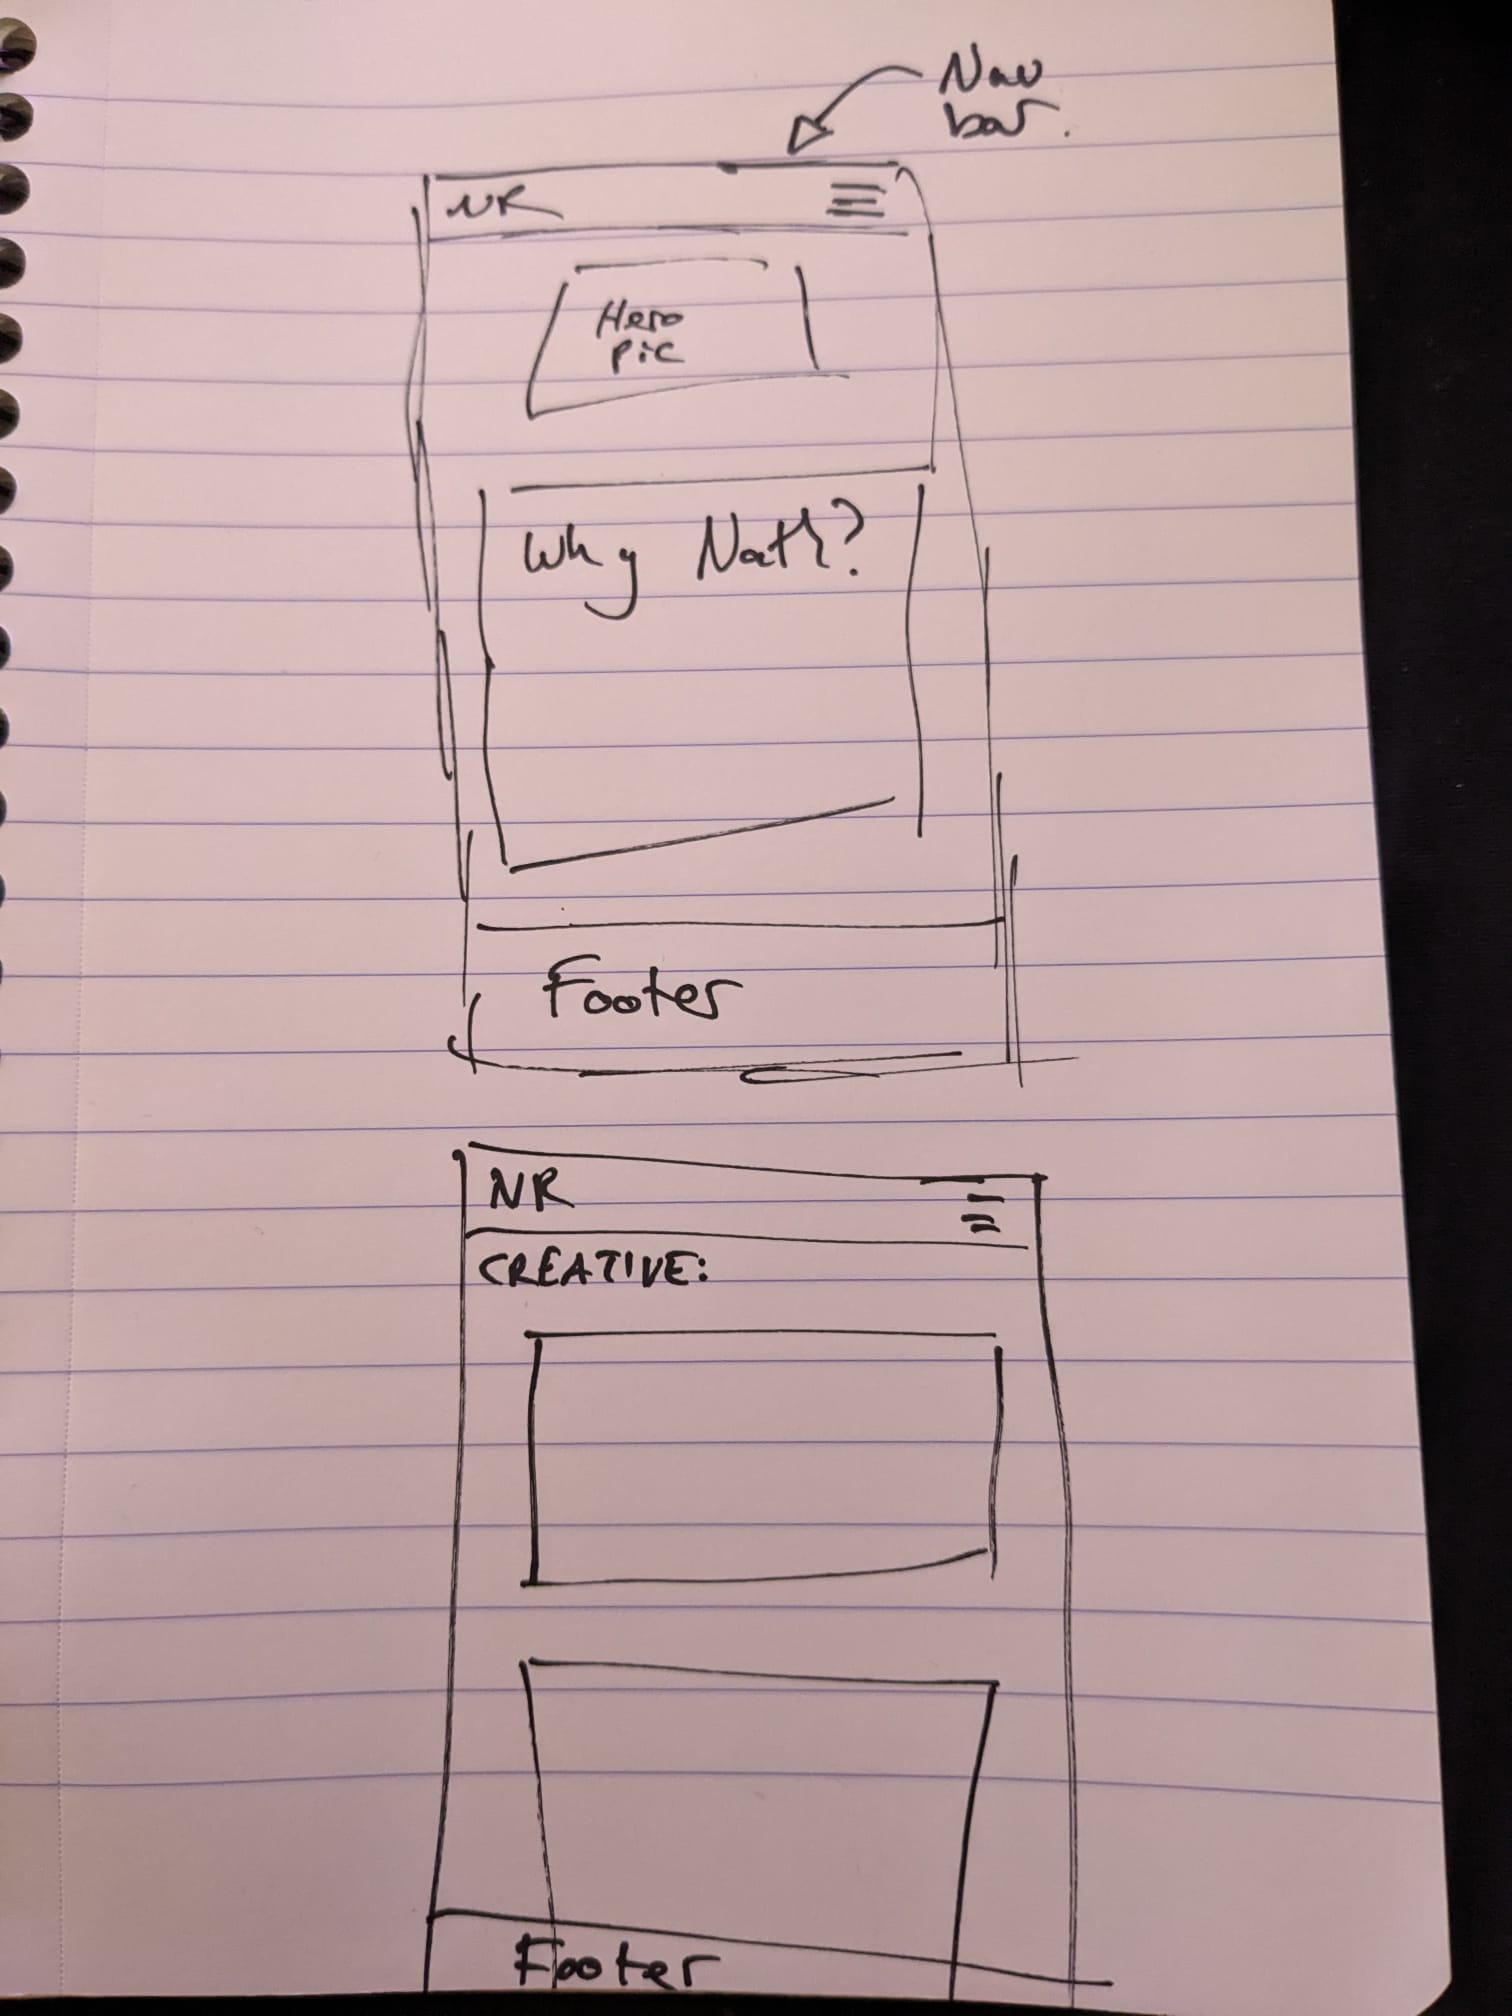 Nav
bar.
NR
Hero
Pic
Why Nath?
Footer
NR
CREATIVE:
Footer